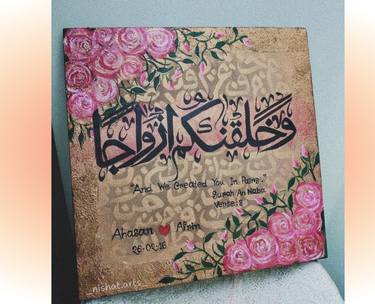 وَخَلَقْنَٰكُمْ أَزْوَاجًا
"And We Created You In Pairs."
Surah An Naba
Verse:8
Ahasan ❤ Afrin
26-02-16
nishat.arts